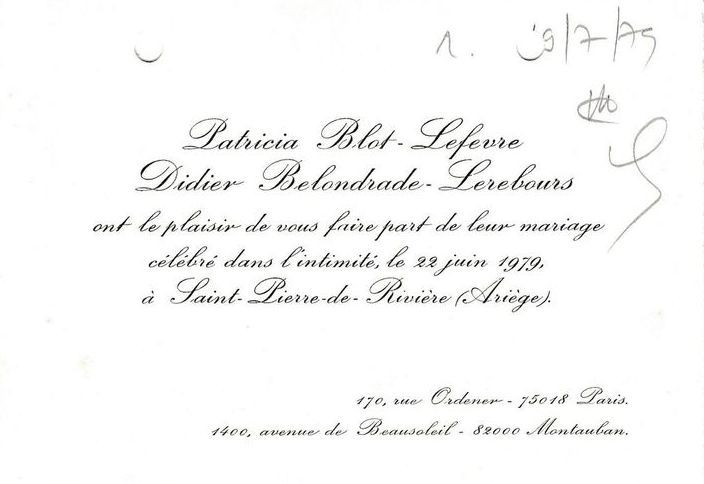 1. 9/7/79
Patricia Blot-Lefevre
Didier Belondrade-Lerebours
ont le plaisir de vous faire part de leur mariage
célébré dans l'intimité, le 22 juin 1979,
à Saint-Pierre-de-Rivière (Ariège).
170, rue Ordener - 75018 Paris.
1400, avenue de Beausoleil - 82000 Montauban.